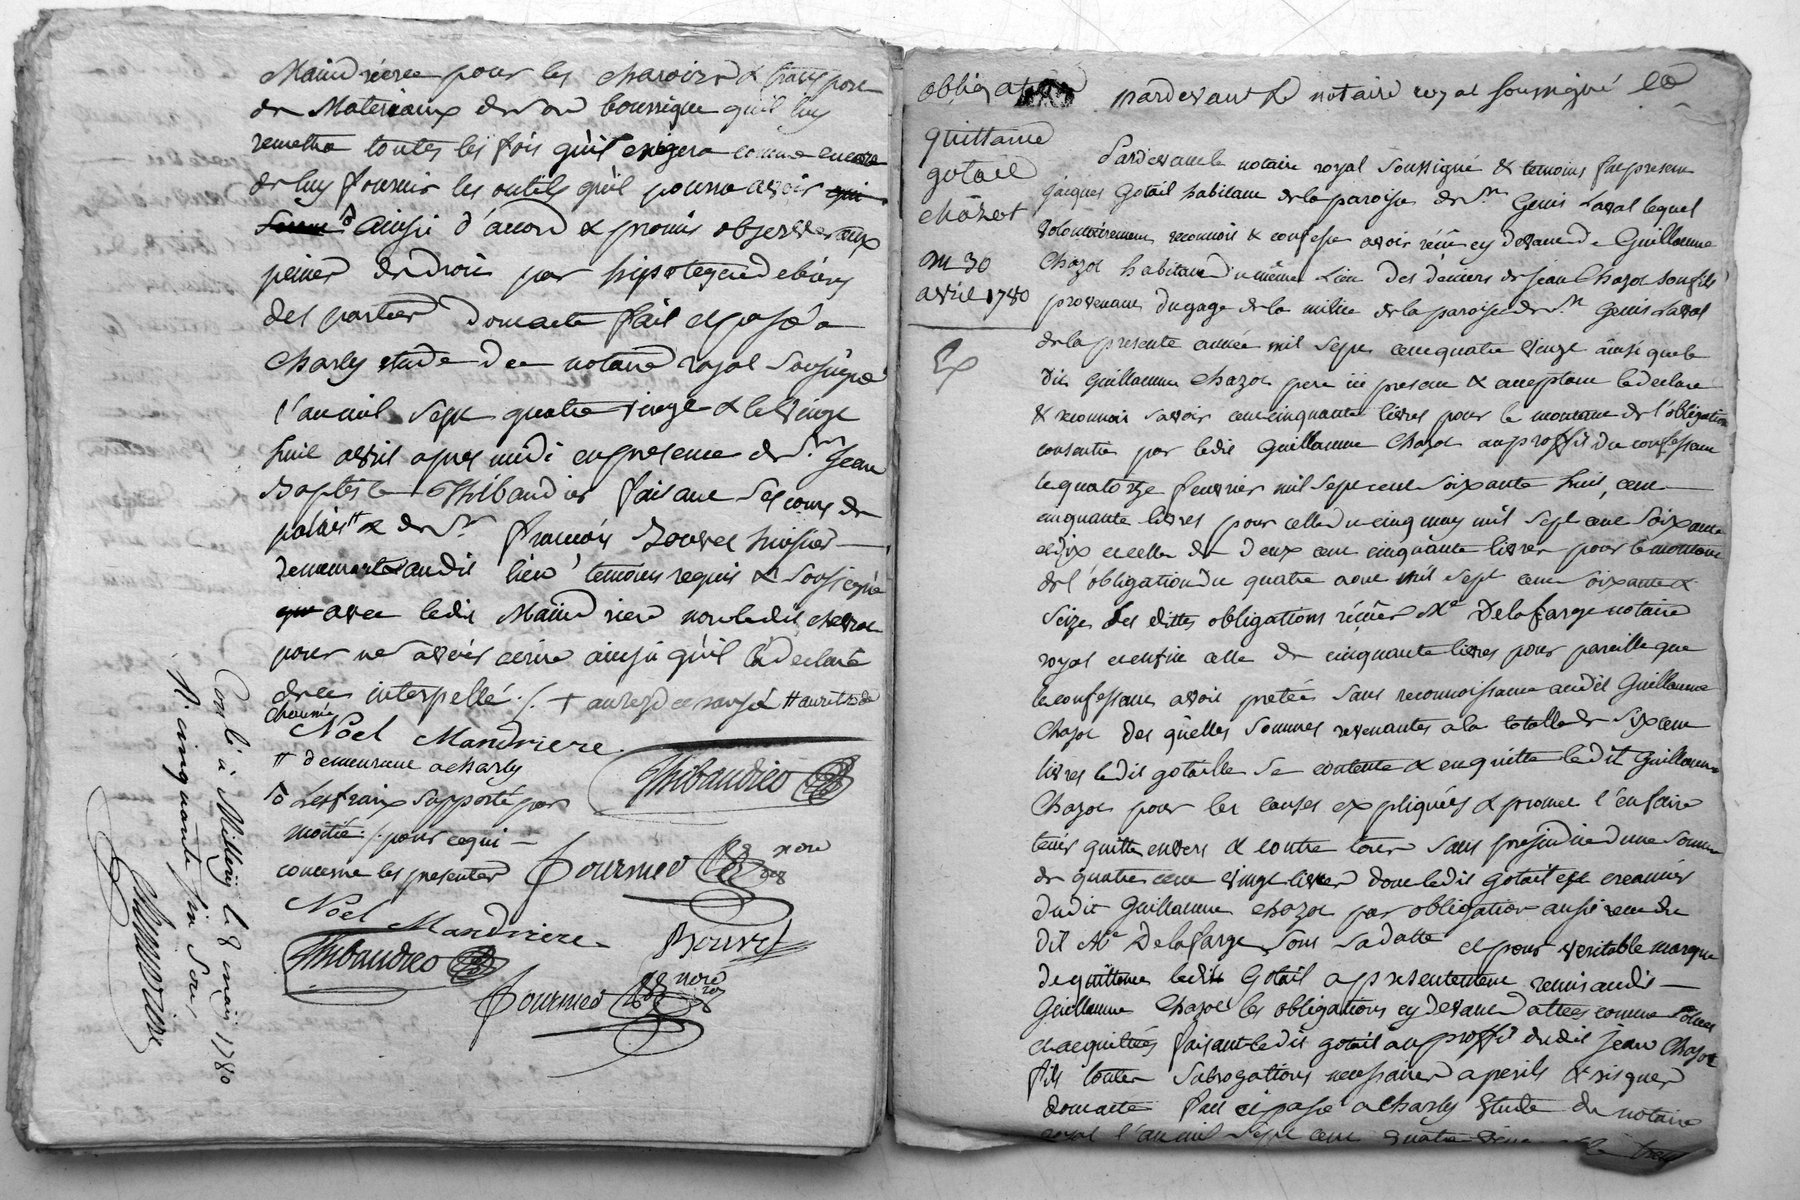 Maind riere pour les charois & transpore
de Materiaux de son boussique qu'il luy
remettra toutes les fois qu'il exigera comme encore
de luy fournir les outils qu'il pourra avoir
ainsi d'accord & promis observer aux
peines de droit par hipoteque de biens
des parties Dont acte fait et passé a
Charly etude dee notaire royal Soussigné
l'an mil Sept quatre vingt & le vingt
huit avril apres midi en presence de Sr. Jean
Baptiste Thibaudier faisant Ses cours de
palais & de Sr. francois Bouvet huissier
audit lieu temoins requis & Soussigné
avec ledit Maind riere non ledit
pour ne savoir ecrire ainsi qu'il l'a declaré
de ce interpellé ./.
Noel Mandriere
# demeurant a charly
Les fraix Supporté par
moitié ./. pour ce qui
concerne les presentes
Thibaudier
fournier nore
Noel Mandriere
Thibaudier
Bouvet
fournier nore
Conllé à Millery le 8 mai 1780
R. cinquante six Sous
obligation
pardevant le notaire royal soussigné
quittance
gotail
chazot
du 30
avril 1780
Pardevant le notaire royal Soussigné & temoins fut present
jacques Gotail habitant de la paroisse de St. Genis Laval lequel
volontairement reconnoit & confesse avoir reçû cy devant de Guillaume
Chazot habitant du même Lieu Des deniers de jean Chazot son fils
provenant du gage de la milice de la paroisse de St. Genis Laval
de la presente année mil Sept cent quatre vingt ainsi que le
dit Guillaume chazot pere ici present & acceptant le declare
& reconnoit savoir cent cinquante livres pour le montant de l'obligation
consentie par ledit Guillaume Chazot au proffit du confessant
le quatorze fevrier mil Sept cent Soixante huit, cent
cinquante livres pour celle du cinq may mil Sept cent Soixante
et dix et celle de deux cent cinquante livres pour le montant
de l'obligation du quatre aout mil Sept cent Soixante &
Seize Les dittes obligations reçûes Me Delafarge notaire
royal et enfin celle de cinquante livres pour pareille que
le confessant avoit pretée Sans reconnoissance audit Guillaume
Chazot Des quelles Sommes revenantes a la totalle de Six cent
livres ledit gotaille Se contente & en quitte ledit Guillaume
Chazot pour les causes expliquées & promet l'en faire
tenir quitte envers & contre tous Sans prejudice d'une Somme
de quatre cent vingt livres dont ledit gotail est creancier
dudit Guillaume chazot par obligation aussi reçue du
dit Me Delafarge Sous Sa datte et pour veritable marque
de quittance ledit Gotail a presentement remis audit
Guillaume Chazot les obligations cy devant dattées comme Solues
et acquittées faisant ledit gotail au proffit dudit jean Chazot
fils toutes Subrogations necessaires a perils & risques
dont acte fait et passé a charly Etude du notaire
royal l'an mil Sept cent quatre vingt